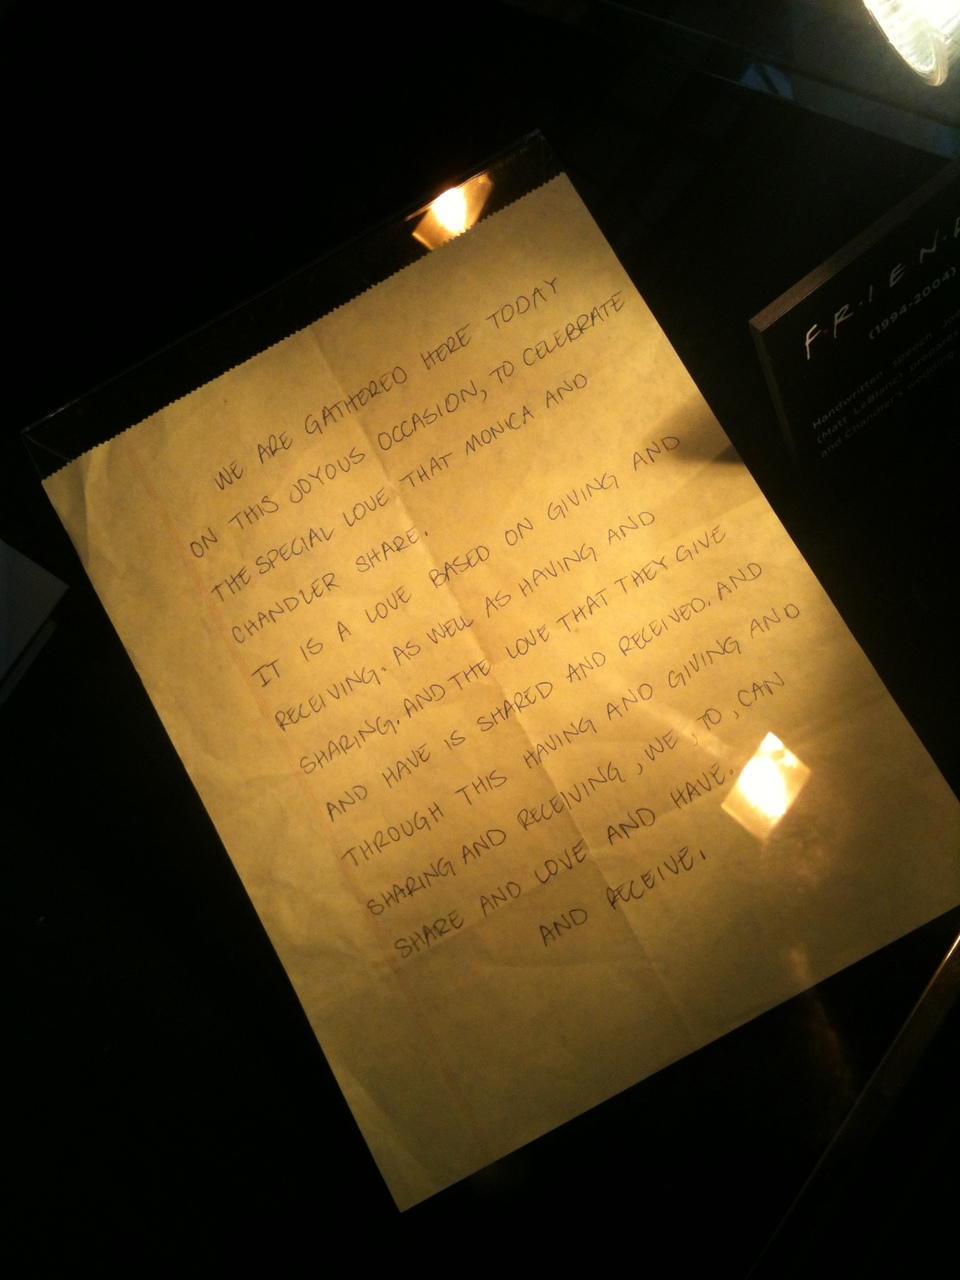 WE ARE GATHERED HERE TODAY
ON THIS JOYOUS OCCASION, TO CELEBRATE
THE SPECIAL LOVE THAT MONICA AND
CHANDLER SHARE.
IT IS A LOVE BASED ON GIVING AND
RECEIVING. AS WELL AS HAVING AND
SHARING. AND THE LOVE THAT THEY GIVE
AND HAVE IS SHARED AND RECEIVED. AND
THROUGH THIS HAVING AND GIVING AND
SHARING AND RECEIVING, WE, TO, CAN
SHARE AND LOVE AND HAVE.
AND RECEIVE.
F·R·I·E·N·
(1994-2004)
Handwritten speech
(Matt LeBlanc) prepare
and Chandler's wedding